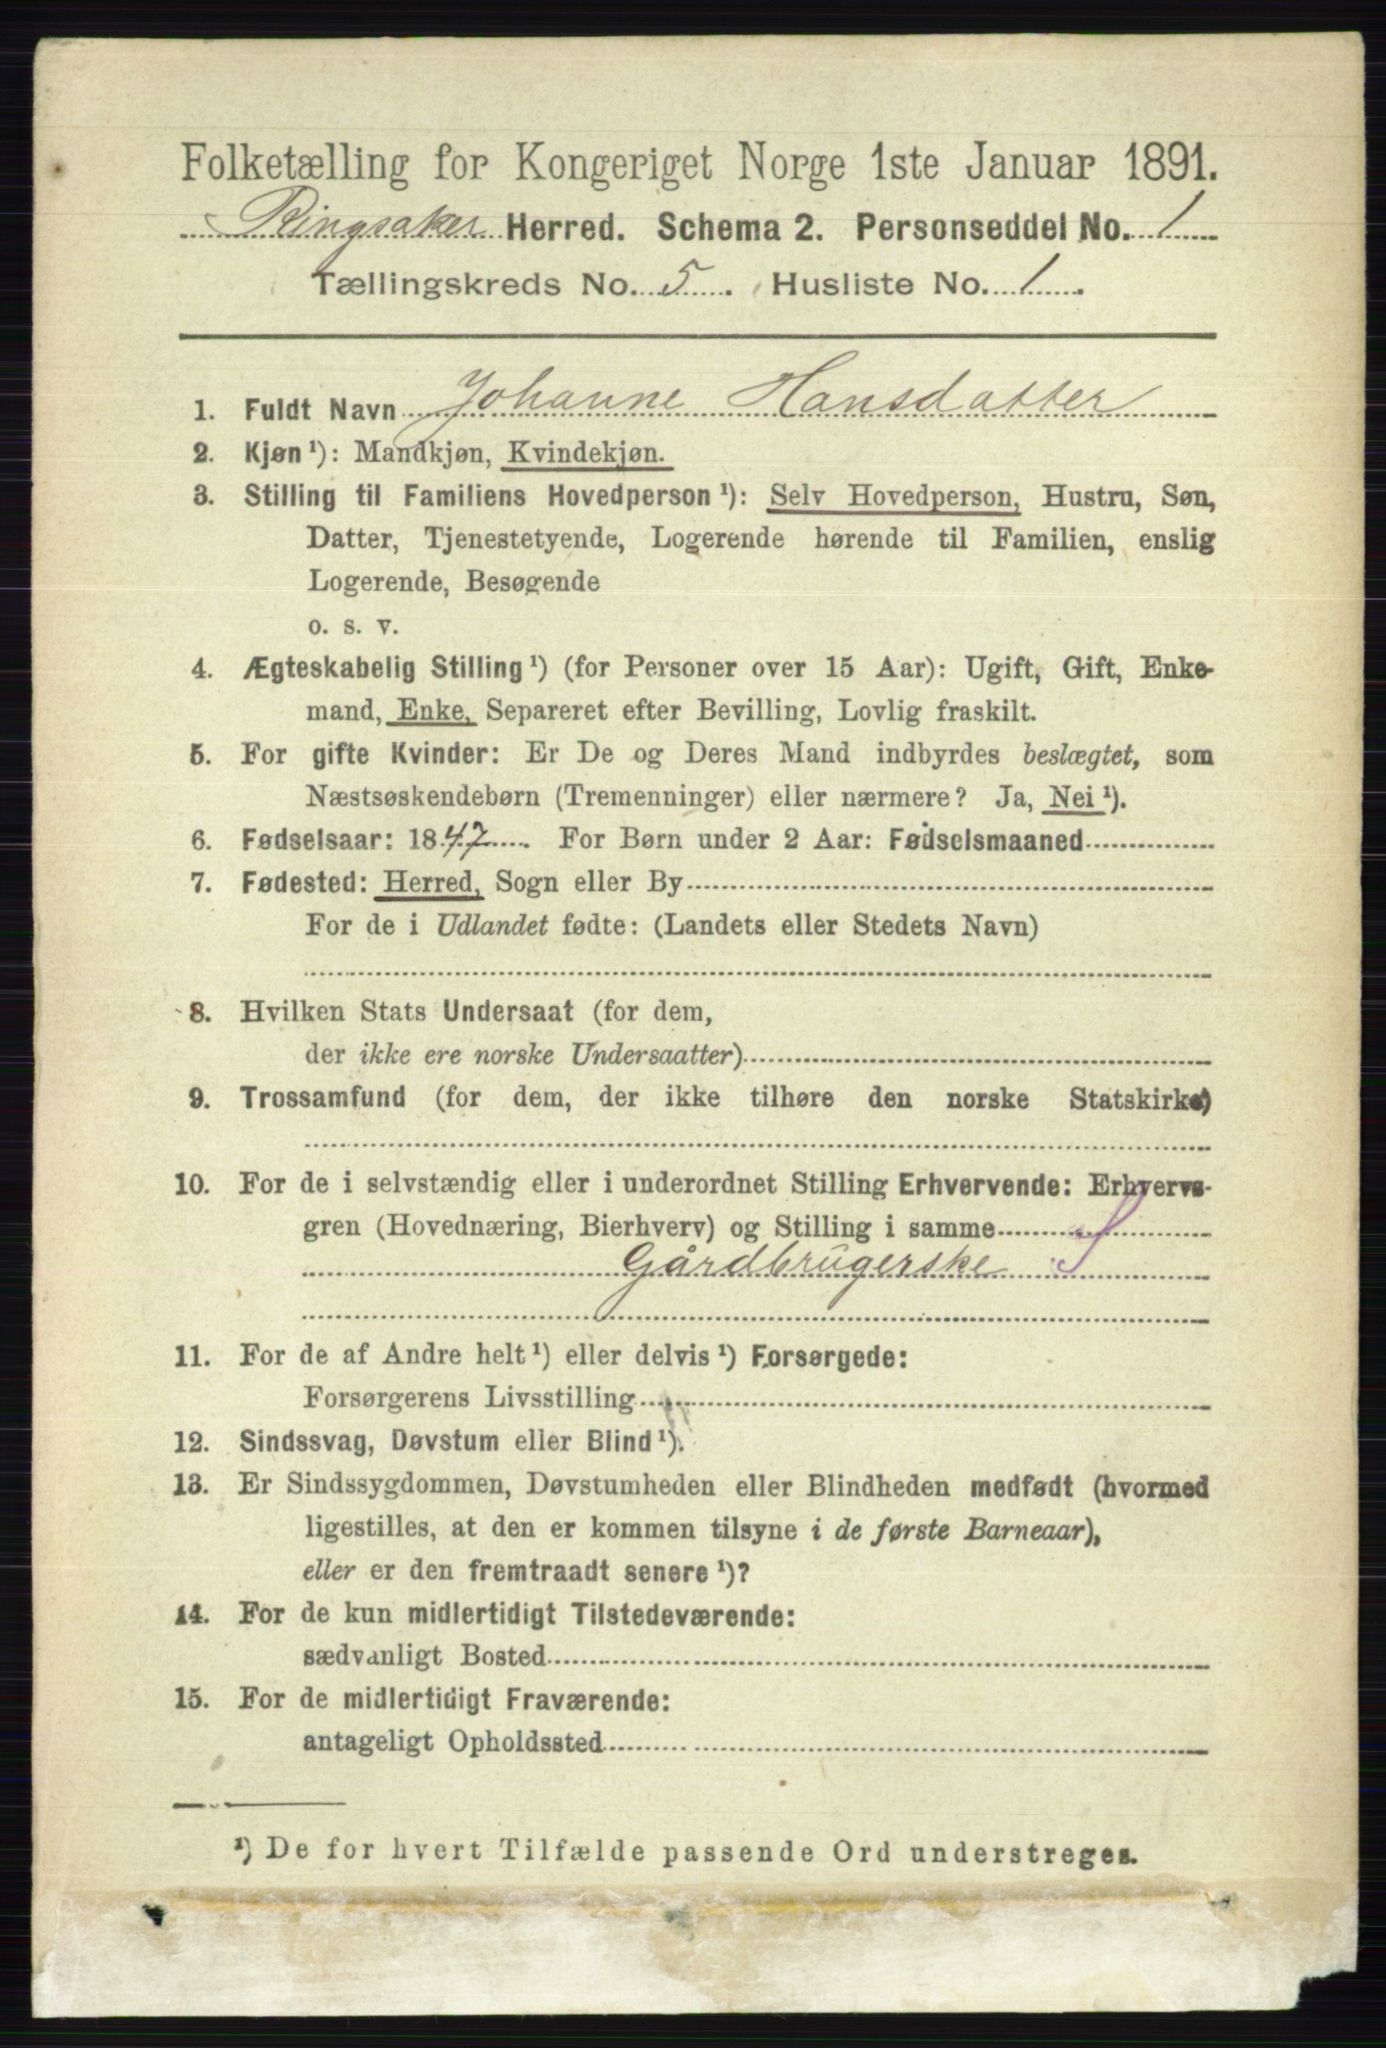 Folketælling for Kongeriget Norge 1ste Januar 1891.
Ringsaker Herred. Schema 2. Personseddel No. 1
Tællingskreds No. 5. Husliste No. 1.
1. Fuldt Navn Johanne Hansdatter
2. Kjøn ¹): Mandkjøn, Kvindekjøn.
3. Stilling til Familiens Hovedperson ¹): Selv Hovedperson, Hustru, Søn,
Datter, Tjenestetyende, Logerende hørende til Familien, enslig
Logerende, Besøgende
o. s. v.
4. Ægteskabelig Stilling ¹) (for Personer over 15 Aar): Ugift, Gift, Enke-
mand, Enke, Separeret efter Bevilling, Lovlig fraskilt.
5. For gifte Kvinder: Er De og Deres Mand indbyrdes beslægtet, som
Næstsøskendebørn (Tremenninger) eller nærmere? Ja, Nei ¹).
6. Fødselsaar: 1847. For Børn under 2 Aar: Fødselsmaaned
7. Fødested: Herred, Sogn eller By
For de i Udlandet fødte: (Landets eller Stedets Navn)
8. Hvilken Stats Undersaat (for dem,
der ikke ere norske Undersaatter)
9. Trossamfund (for dem, der ikke tilhøre den norske Statskirke)
10. For de i selvstændig eller i underordnet Stilling Erhvervende: Erhvervs-
gren (Hovednæring, Bierhverv) og Stilling i samme
Gårdbrugerske S
11. For de af Andre helt ¹) eller delvis ¹) Forsørgede:
Forsørgerens Livsstilling
12. Sindssvag, Døvstum eller Blind ¹).
13. Er Sindssygdommen, Døvstumheden eller Blindheden medfødt (hvormed
ligestilles, at den er kommen tilsyne i de første Barneaar),
eller er den fremtraadt senere ¹)?
14. For de kun midlertidigt Tilstedeværende:
sædvanligt Bosted
15. For de midlertidigt Fraværende:
antageligt Opholdssted
¹) De for hvert Tilfælde passende Ord understreges.